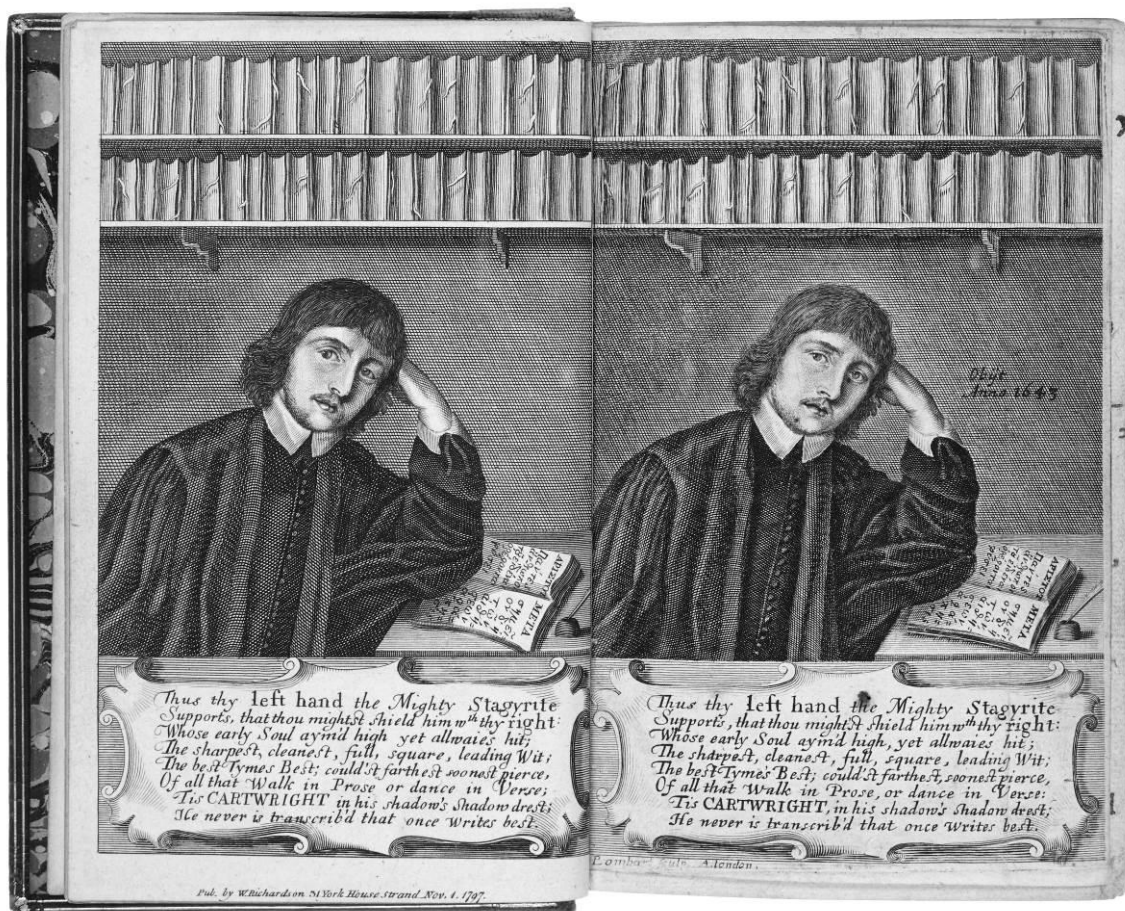 Thus thy left hand the Mighty Stagyrite
Supports, that thou might'st shield him wth thy right:
Whose early Soul aym'd high yet allwaies hit;
The sharpest, cleanest, full, square, leading Wit;
The best Tymes Best; could'st farthest soonest pierce,
Of all that Walk in Prose or dance in Verse;
Tis CARTWRIGHT in his shadow's shadow drest;
He never is transcrib'd that once Writes best.
Pub. by W. Richardson York House Strand Nov. 1. 1797.
ΑΡΙΣΤΟΤ ΜΕΤΑ
Obijt
Anno 1643
ΑΡΙΣΤΟΤ ΜΕΤΑ
Thus thy left hand the Mighty Stagyrite
Supports, that thou might'st shield him wth thy right:
Whose early Soul aym'd high, yet allwaies hit;
The sharpest, cleanest, full, square, leading Wit;
The best Tyme's Best; could'st farthest, soonest pierce,
Of all that Walk in Prose, or dance in Verse:
Tis CARTWRIGHT, in his shadow's shadow drest;
He never is transcrib'd that once Writes best.
P. Lombart sculp. A. london.